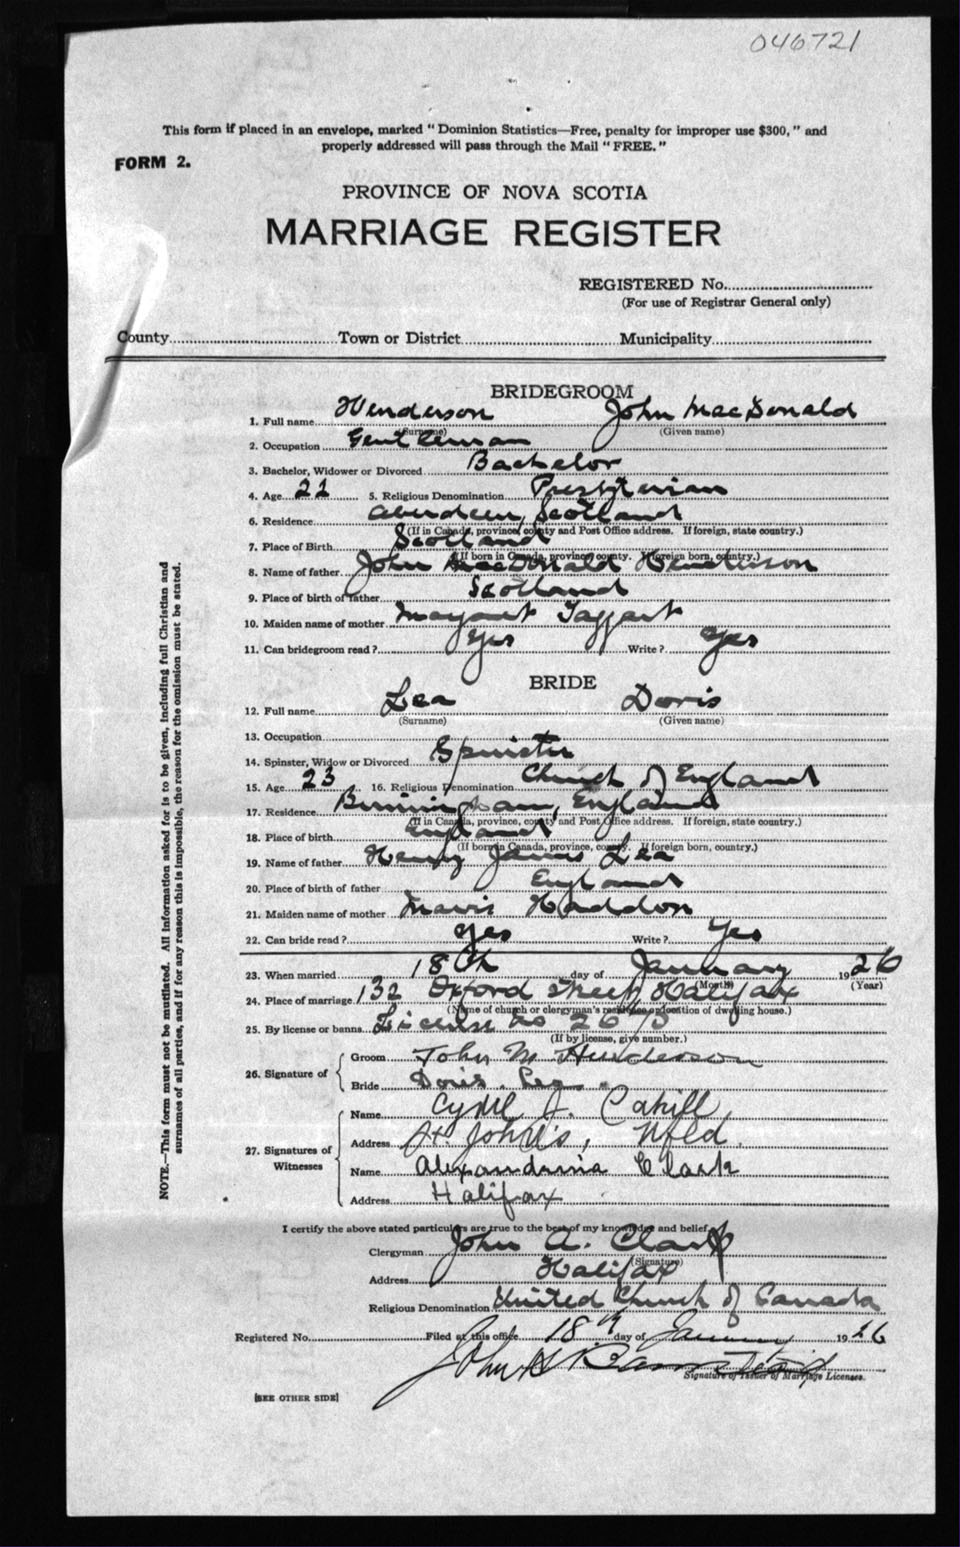 046721
This form if placed in an envelope, marked "Dominion Statistics—Free, penalty for improper use $300," and
properly addressed will pass through the Mail "FREE."
FORM 2.
PROVINCE OF NOVA SCOTIA
MARRIAGE REGISTER
REGISTERED No.
(For use of Registrar General only)
County Town or District Municipality
BRIDEGROOM
1. Full name Henderson John MacDonald
(Surname) (Given name)
2. Occupation Gentleman
3. Bachelor, Widower or Divorced Bachelor
4. Age 22 5. Religious Denomination Presbyterian
6. Residence Aberdeen, Scotland
(If in Canada, province, county and Post Office address. If foreign, state country.)
7. Place of Birth Scotland
(If born in Canada, province, county. If foreign born, country.)
8. Name of father John MacDonald Henderson
9. Place of birth of father Scotland
10. Maiden name of mother Margaret Taggart
11. Can bridegroom read? Yes Write? Yes
BRIDE
12. Full name Lea Doris
(Surname) (Given name)
13. Occupation
14. Spinster, Widow or Divorced Spinster
15. Age 23 16. Religious Denomination Church of England
17. Residence Birmingham, England
(If in Canada, province, county and Post Office address. If foreign, state country.)
18. Place of birth England
(If born in Canada, province, county. If foreign born, country.)
19. Name of father Henry James Lea
20. Place of birth of father England
21. Maiden name of mother Mavis Haddon
22. Can bride read? Yes Write? Yes
23. When married 18th day of January 1926
(Month) (Year)
24. Place of marriage 132 Oxford Street Halifax
(Name of church or clergyman's residence or location of dwelling house.)
25. By license or banns License no
(If by license, give number.)
26. Signature of Groom John M Henderson
Bride Doris Lea
27. Signatures of Witnesses Name J. Cahill
Address St John's, Nfld.
Name Clark
Address Halifax
I certify the above stated particulars are true to the best of my knowledge and belief
Clergyman John A. Clark
(Signature)
Address Halifax
Religious Denomination United Church of Canada
Registered No. Filed at this office 18th day of January 1926
John
Signature of Issuer of Marriage Licenses.
[SEE OTHER SIDE]
NOTE.—This form must not be mutilated. All information asked for is to be given, including full Christian and
surnames of all parties, and if for any reason this is impossible, the reason for the omission must be stated.